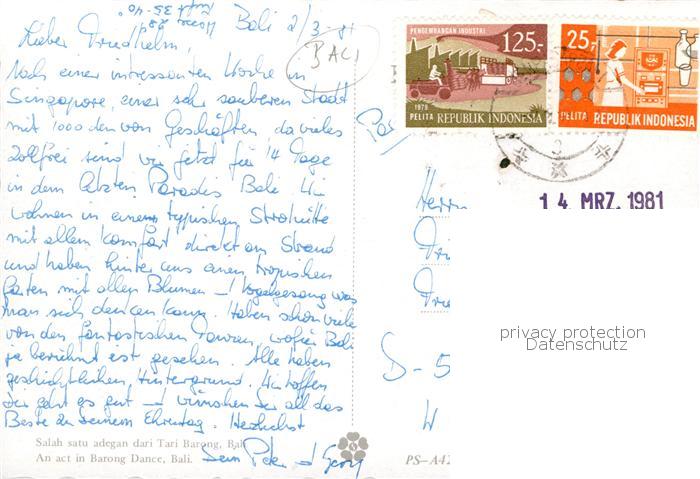 Bali 2/3-81
BALI
Lieber Friedhelm,
Nach einer interessanten Woche in
Singapore, einer sehr sauberen Stadt
mit 1000 den von Geschäften, da vieles
zollfrei sind wir jetzt für 14 Tage
in dem letzten Paradis Bali. Wir
wohnen in einem typischen Strohhütte
mit allem Komfort direkt am Strand
und haben hinter uns einen tropischen
Garten mit allen Blumen + Vogelgesang was
man sich denken kann. Haben schon viele
von den fantastischen Tänzen wofür Bali
ja berühmt ist gesehen. Alle haben
geschichtlichen Hintergrund. Wir hoffen
Dir geht es gut + wünschen Dir all das
Beste zu Deinem Ehrentag. Herzlichst
Dein Peter + Georg
Salah satu adegan dari Tari Barong, Bali.
An act in Barong Dance, Bali.
PENGEMBANGAN INDUSTRI
125.-
1978
PELITA REPUBLIK INDONESIA
25.-
PELITA REPUBLIK INDONESIA
14. MRZ. 1981
Herrn
D-5
W
PS-A42
privacy protection
Datenschutz